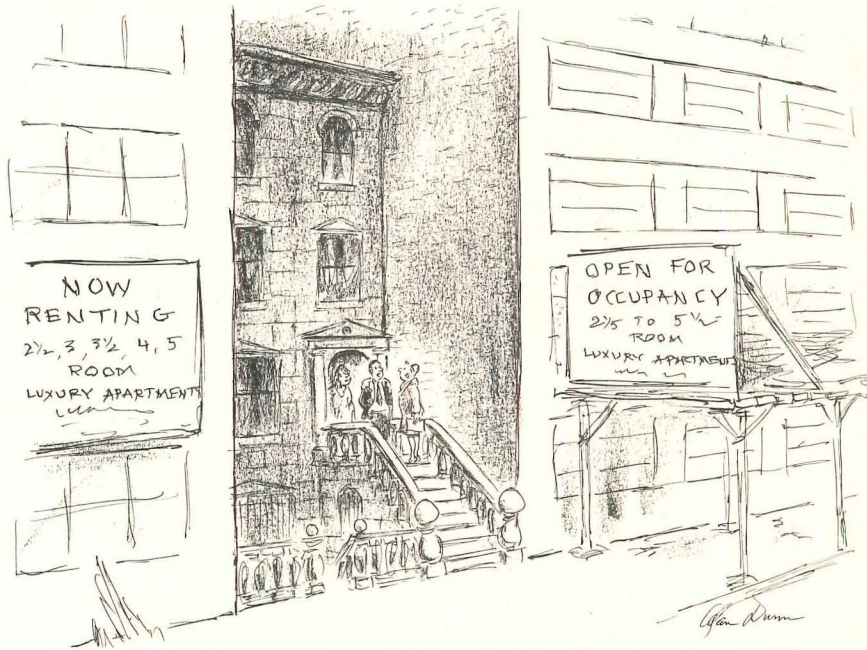 NOW
RENTING
2½, 3, 3½, 4, 5
ROOM
LUXURY APARTMENTS
OPEN FOR
OCCUPANCY
2½ TO 5½
ROOM
LUXURY APARTMENTS
Alan Dunn